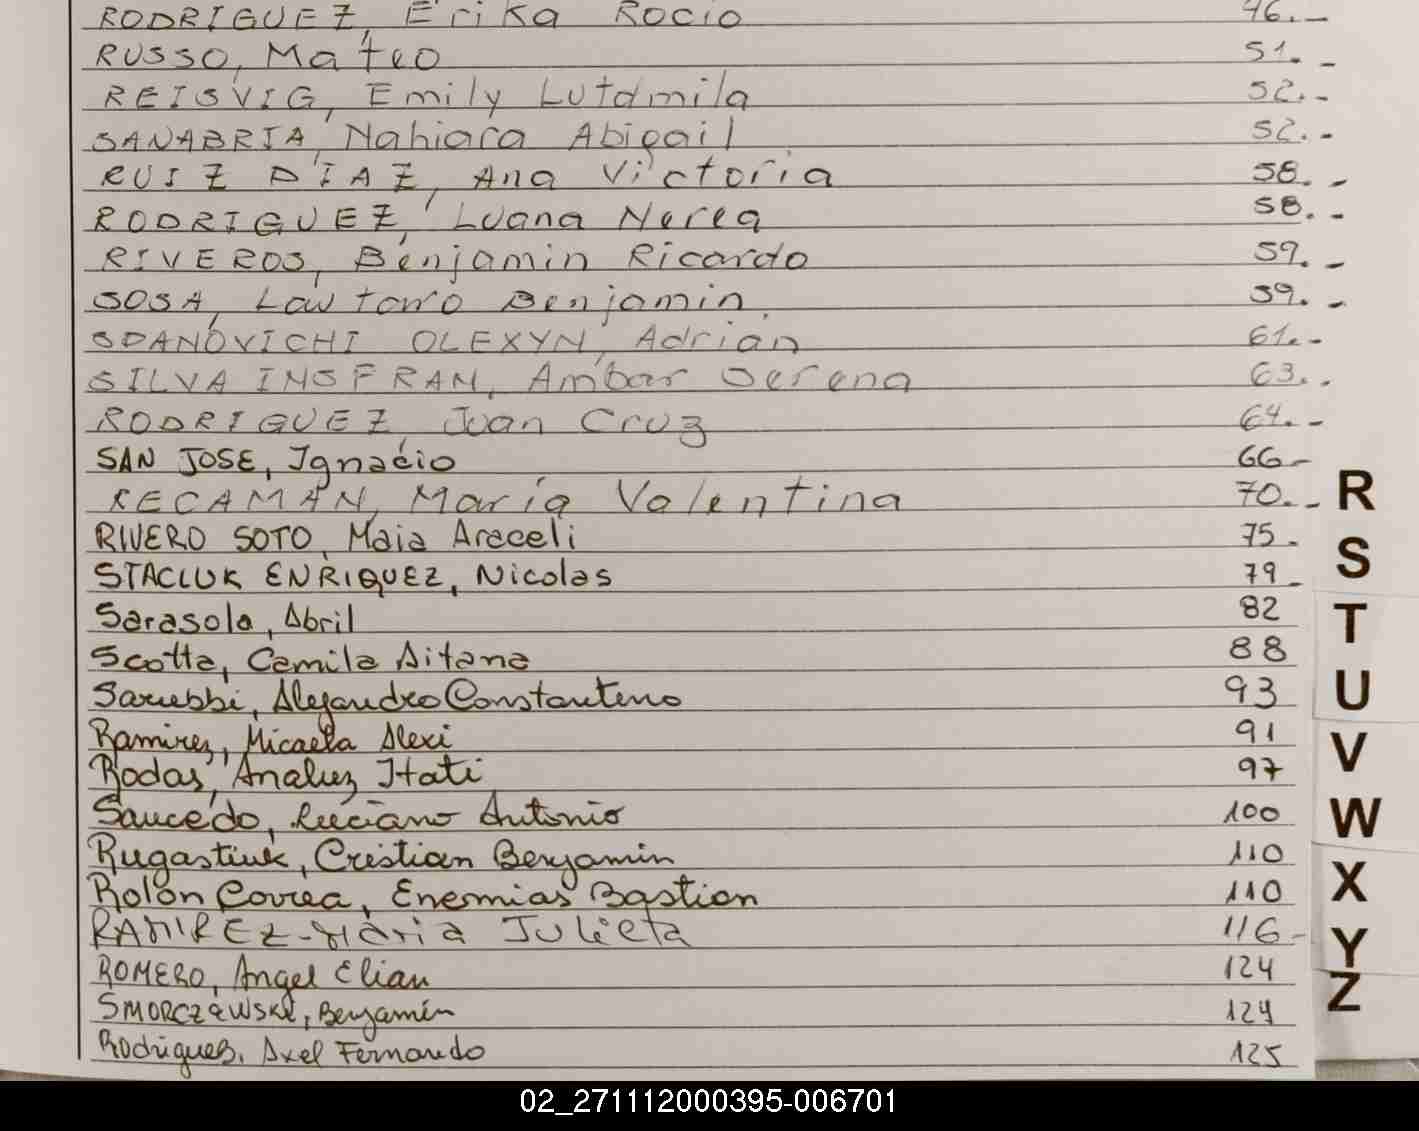 RODRIGUEZ, Erika Rocio 46.-
RUSSO, Mateo 51.-
REISVIG, Emily Lutdmila 52.-
SANABRIA, Nahiara Abigail 52.-
RUIZ DIAZ, Ana Victoria 58.-
RODRIGUEZ, Luana Nerea 58.-
RIVEROS, Benjamin Ricardo 59.-
SOSA, Lautaro Benjamin. 59.-
SPANOVICHI OLEXYN, Adrian 61.-
SILVA INSFRAN, Ambar Serena 63..
RODRIGUEZ, Juan Cruz 64.-
SAN JOSE, Ignacio 66-
RECAMAN, María Valentina 70.-
RIVERO SOTO, Maia Araceli 75.
STACIUK ENRIQUEZ, Nicolas 79-
Sarasola, Abril 82
Scotta, Camila Aitana 88
Sarubbi, Alejandro Constantino 93
Ramirez, Micaela Alexi 91
Rodas, Analuz Itati 97
Saucedo, Luciano Antonio 100
Rugastiuk, Cristian Benjamin 110
Rolón Correa, Enemias Bastian 110
RAMIREZ-Maria Julieta 116-
ROMERO, Angel Elian 124
SMORCZEWSKI, Benjamín 124
Rodriguez, Axel Fernando 125
R
S
T
U
V
W
X
Y
Z
02_271112000395-006701